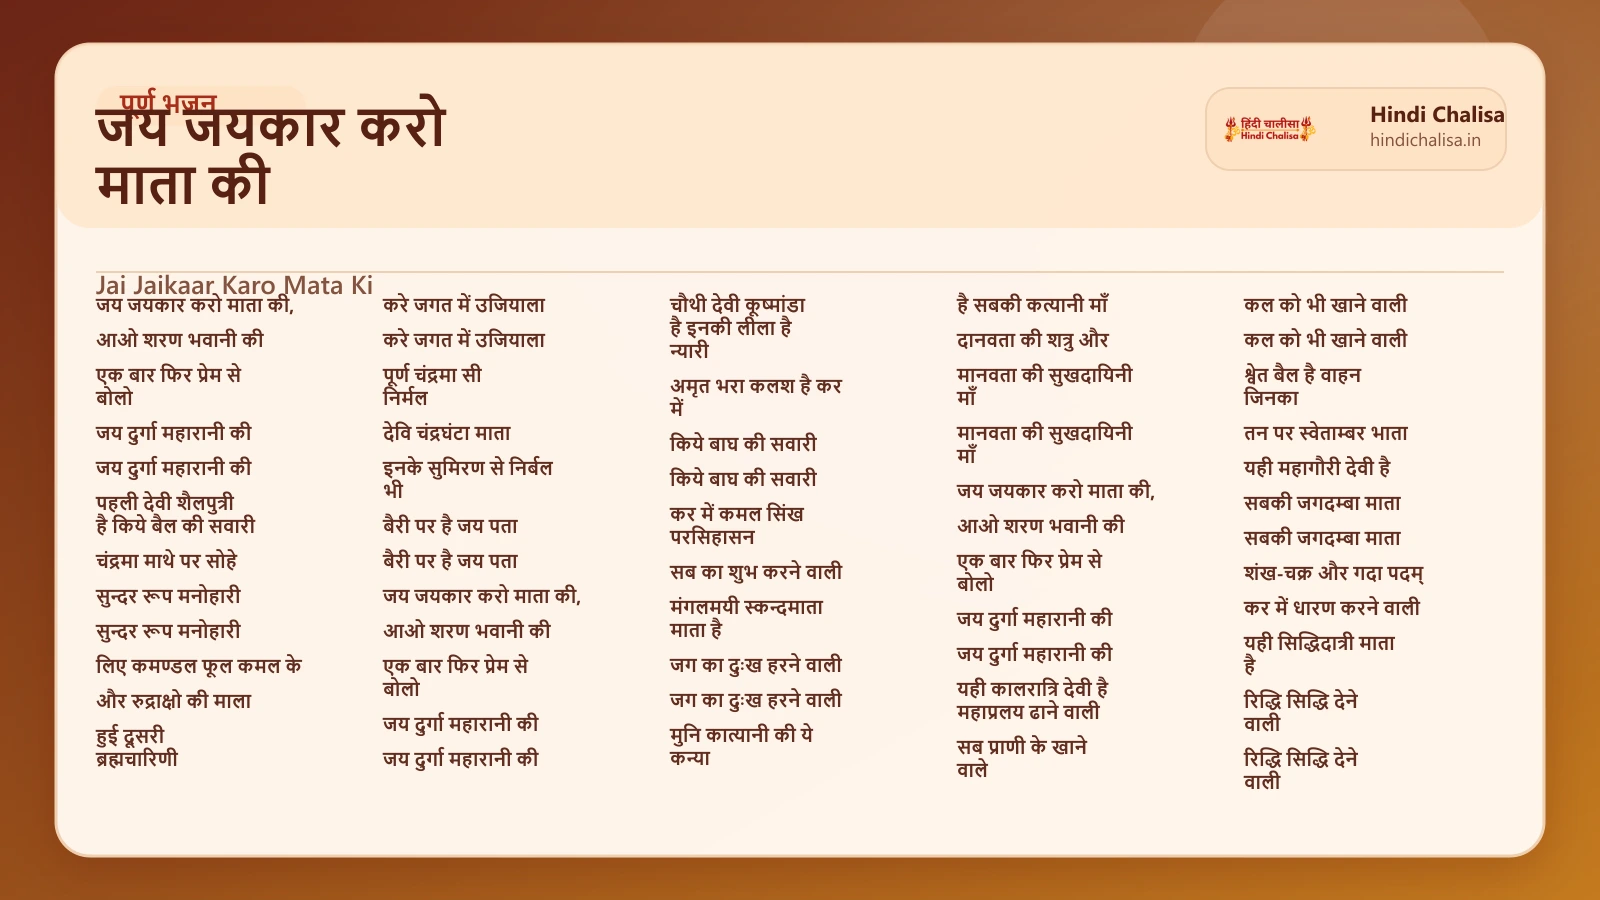 पूर्ण भजन
जय जयकार करो
माता की
हिंदी चालीसा
Hindi Chalisa
Hindi Chalisa
hindichalisa.in
Jai Jaikaar Karo Mata Ki
जय जयकार करो माता की,
आओ शरण भवानी की
एक बार फिर प्रेम से
बोलो
जय दुर्गा महारानी की
जय दुर्गा महारानी की
पहली देवी शैलपुत्री
है किये बैल की सवारी
चंद्रमा माथे पर सोहे
सुन्दर रूप मनोहारी
सुन्दर रूप मनोहारी
लिए कमण्डल फूल कमल के
और रुद्राक्षो की माला
हुई दूसरी
ब्रह्मचारिणी
करे जगत में उजियाला
करे जगत में उजियाला
पूर्ण चंद्रमा सी
निर्मल
देवि चंद्रघंटा माता
इनके सुमिरण से निर्बल
भी
बैरी पर है जय पता
बैरी पर है जय पता
जय जयकार करो माता की,
आओ शरण भवानी की
एक बार फिर प्रेम से
बोलो
जय दुर्गा महारानी की
जय दुर्गा महारानी की
चौथी देवी कूष्मांडा
है इनकी लीला है
न्यारी
अमृत भरा कलश है कर
में
किये बाघ की सवारी
किये बाघ की सवारी
कर में कमल सिंख
परसिहासन
सब का शुभ करने वाली
मंगलमयी स्कन्दमाता
माता है
जग का दुःख हरने वाली
जग का दुःख हरने वाली
मुनि कात्यानी की ये
कन्या
है सबकी कत्यानी माँ
दानवता की शत्रु और
मानवता की सुखदायिनी
माँ
मानवता की सुखदायिनी
माँ
जय जयकार करो माता की,
आओ शरण भवानी की
एक बार फिर प्रेम से
बोलो
जय दुर्गा महारानी की
जय दुर्गा महारानी की
यही कालरात्रि देवी है
महाप्रलय ढाने वाली
सब प्राणी के खाने
वाले
कल को भी खाने वाली
कल को भी खाने वाली
श्वेत बैल है वाहन
जिनका
तन पर स्वेताम्बर भाता
यही महागौरी देवी है
सबकी जगदम्बा माता
सबकी जगदम्बा माता
शंख-चक्र और गदा पदम्
कर में धारण करने वाली
यही सिद्धिदात्री माता
है
रिद्धि सिद्धि देने
वाली
रिद्धि सिद्धि देने
वाली